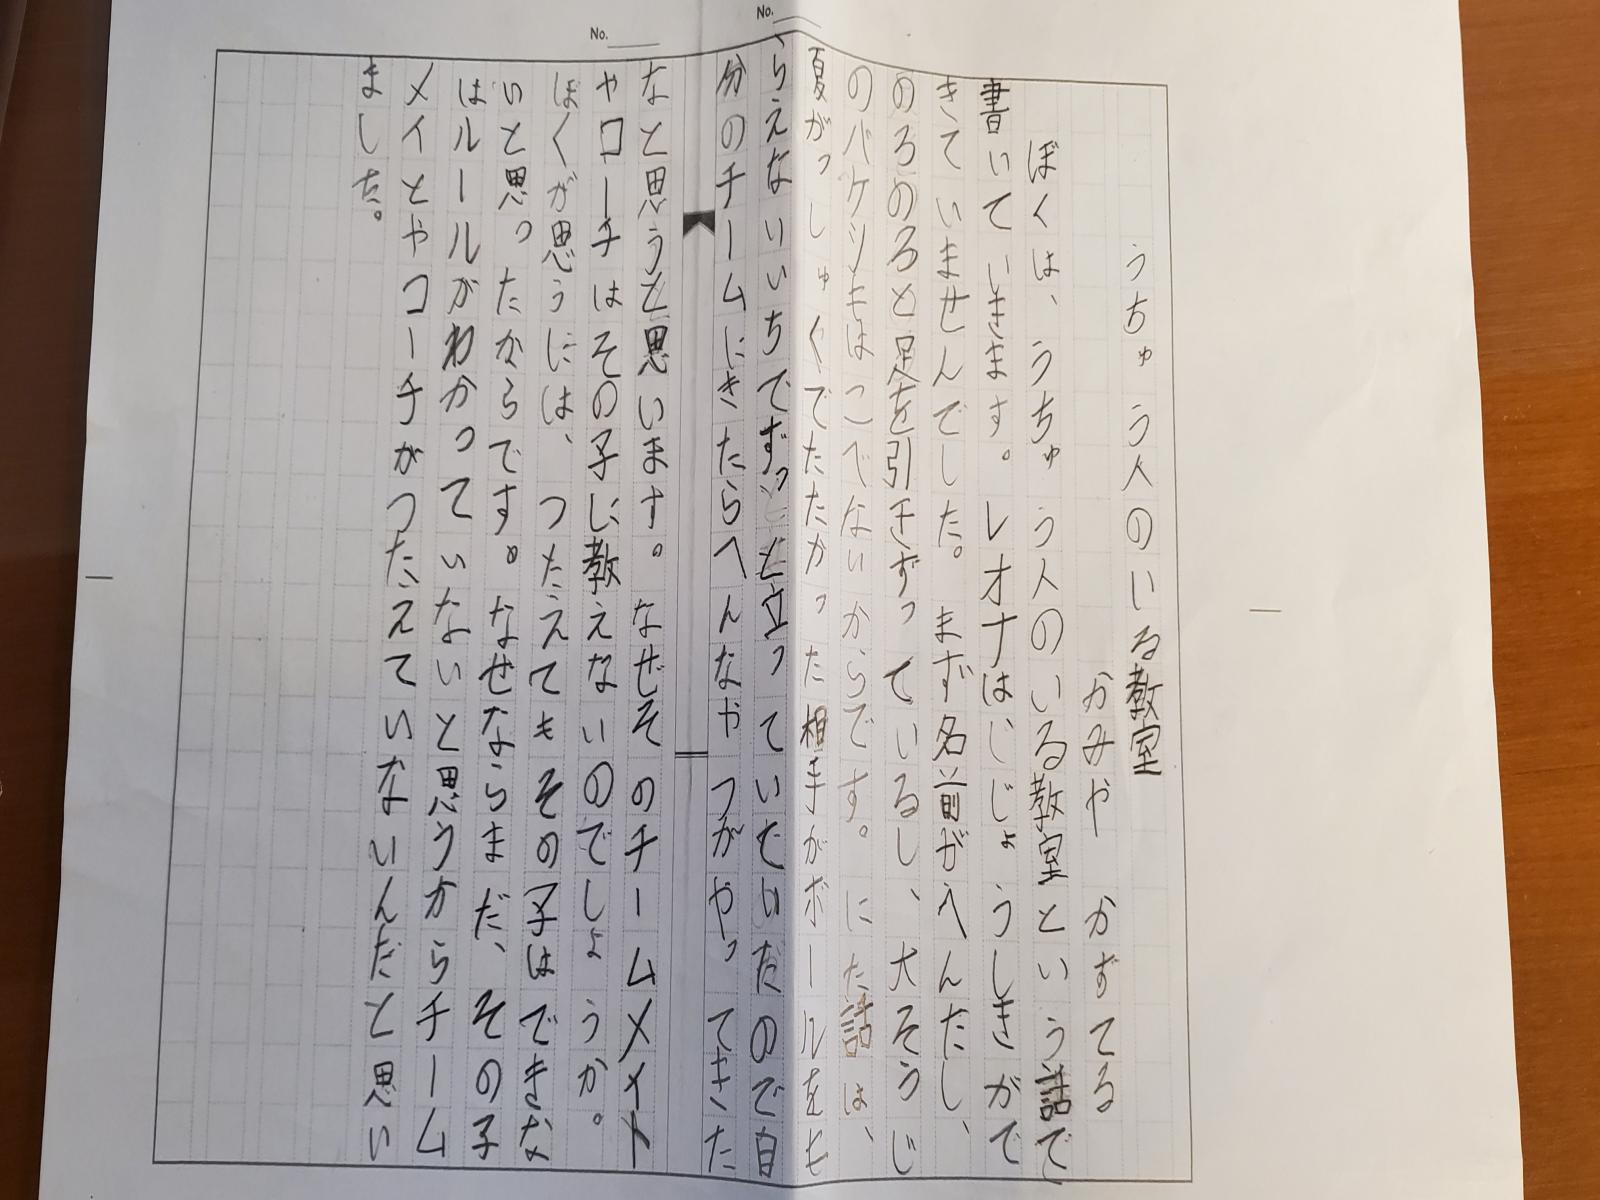 No.
No.
うちゅう人のいる教室
かみや かずてる
ぼくは、うちゅう人のいる教室という話で
書いていきます。レオナはじじょうしきがで
きていませんでした。まず名前がへんたし、
のろのろと足を引きずっているし、大そうじ
のバケツもはこべないからです。にた話は、
夏がっしゅくでたたかった相手がボールをも
らえないいちでずっと立っていたいたので自
分のチームにきたらへんなやつがやってきた
なと思うと思います。なぜそのチームメイト
やコーチはその子に教えないのでしょうか。
ぼくが思うには、つたえてもその子はできな
いと思ったからです。なぜならまだ、その子
はルールがわかっていないと思うからチーム
メイトやコーチがつたえていないんだと思い
ました。